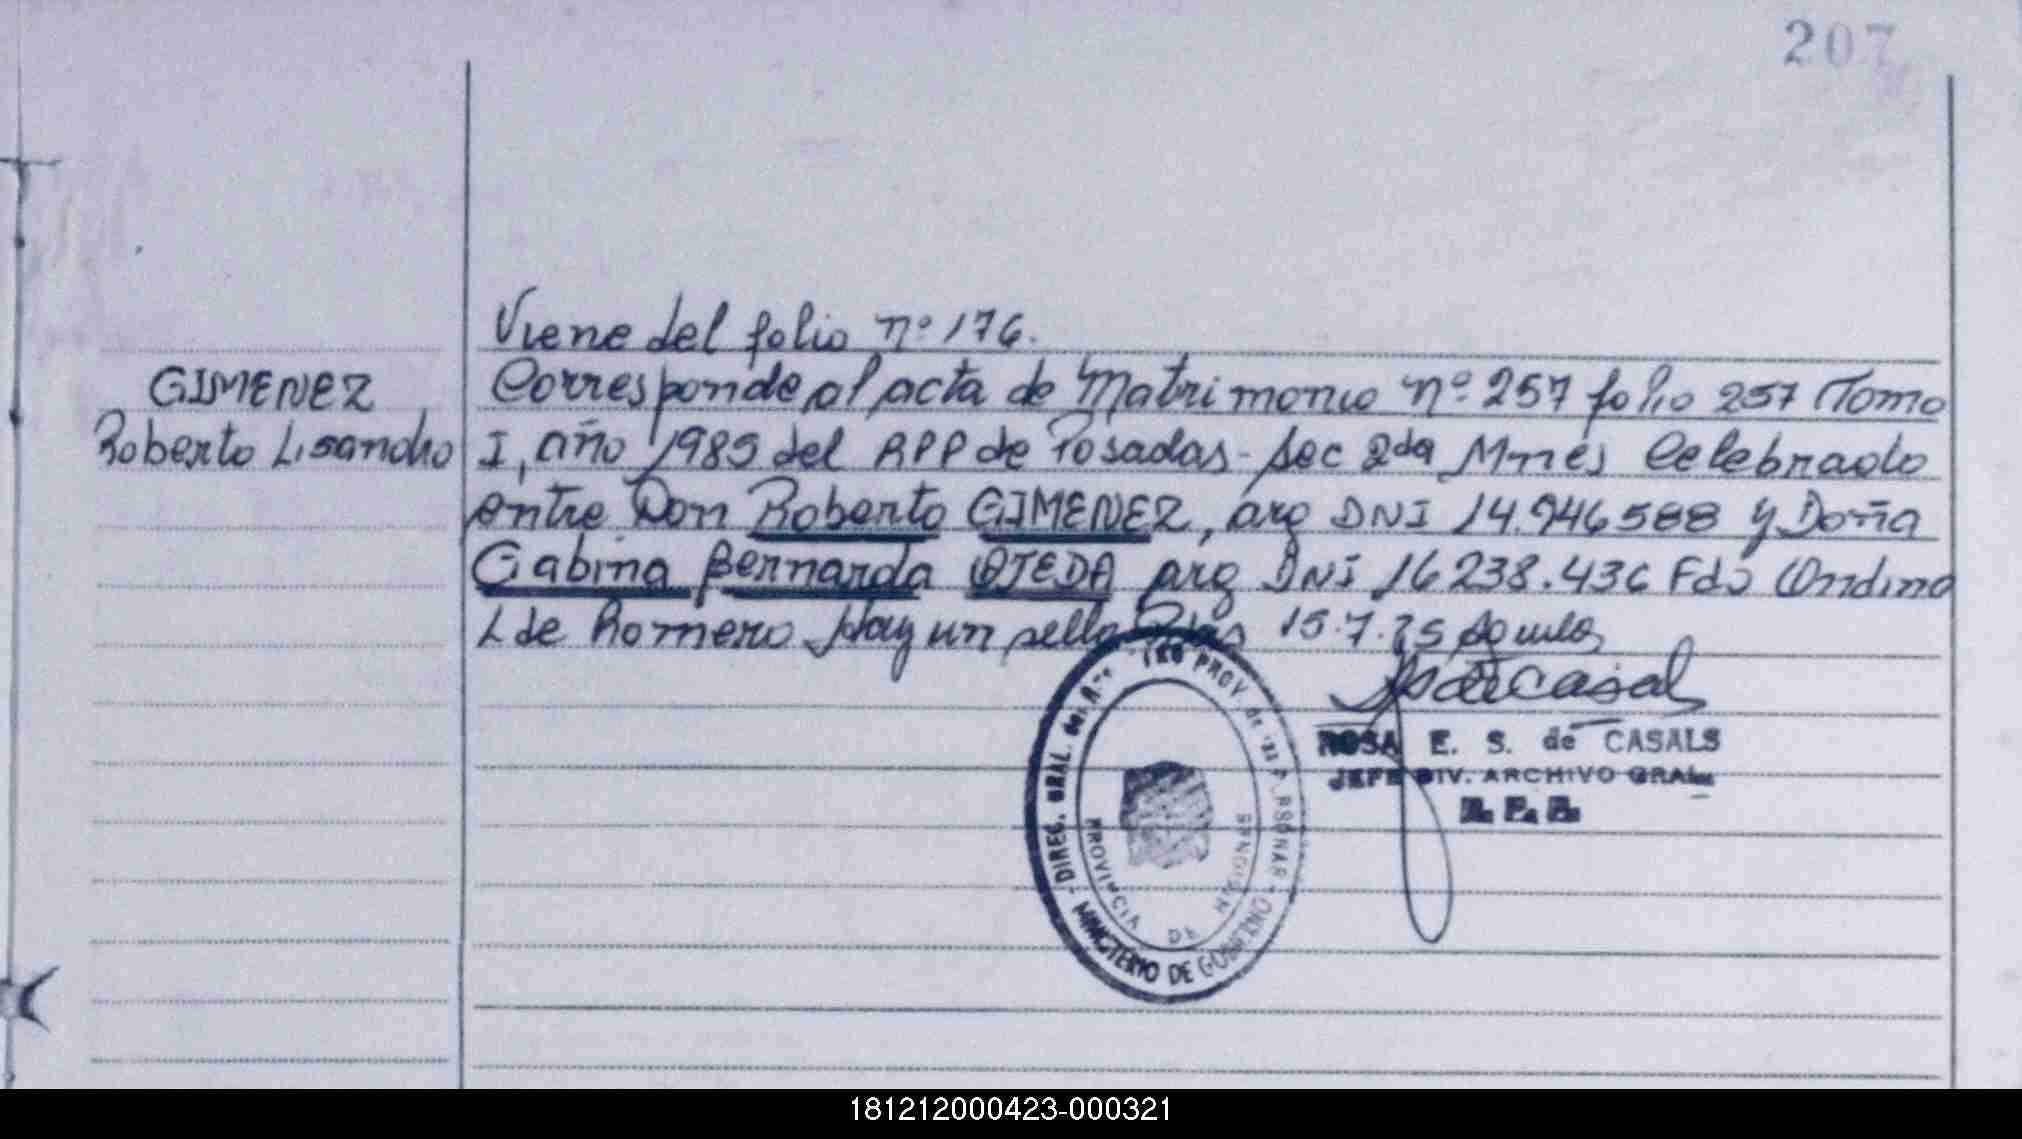 207
Viene del folio nº 176.
GIMENEZ
Roberto Lisandro
Corresponde al acta de Matrimonio nº 257 folio 257 Tomo
I, año 1985 del RPP de Posadas - Sec 2da Mnes Celebrado
entre Don Roberto GIMENEZ, arg DNI 14.946588 y Doña
Gabina Bernarda OJEDA arg DNI 16238.436 Fdo Ondina
L de Romero Hay un sello Pdas 15.7.85
ROSA E. S. de CASALS
JEFE DIV. ARCHIVO GRAL.
R. P. P.
DIREC. GRAL. del REG PROV. de las PERSONAS
MINISTERIO DE GOBIERNO
PROVINCIA DE MISIONES
181212000423-000321